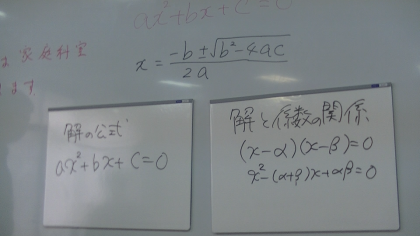 ax²+bx+c=0
は 家庭科室
ます
x = -b±√b²-4ac / 2a
解の公式
ax²+bx+c=0
解と係数の関係
(x-α)(x-β)=0
x²-(α+β)x+αβ=0